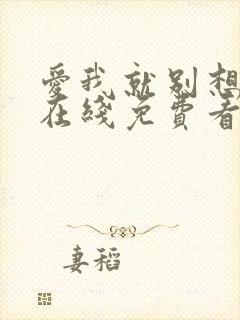 愛我就别想
在綫免費看
妻稻